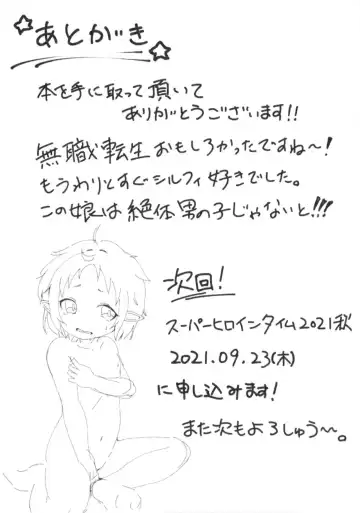 あとがき
本を手に取って頂いて
ありがとうございます!!
無職転生おもしろかったですね〜!
もうわりとすぐシルフィ好きでした。
この娘は絶体男の子じゃないと!!!
次回!
スーパーヒロインタイム2021秋
2021.09.23(木)
に申し込みます!
また次もよろしゅう〜。